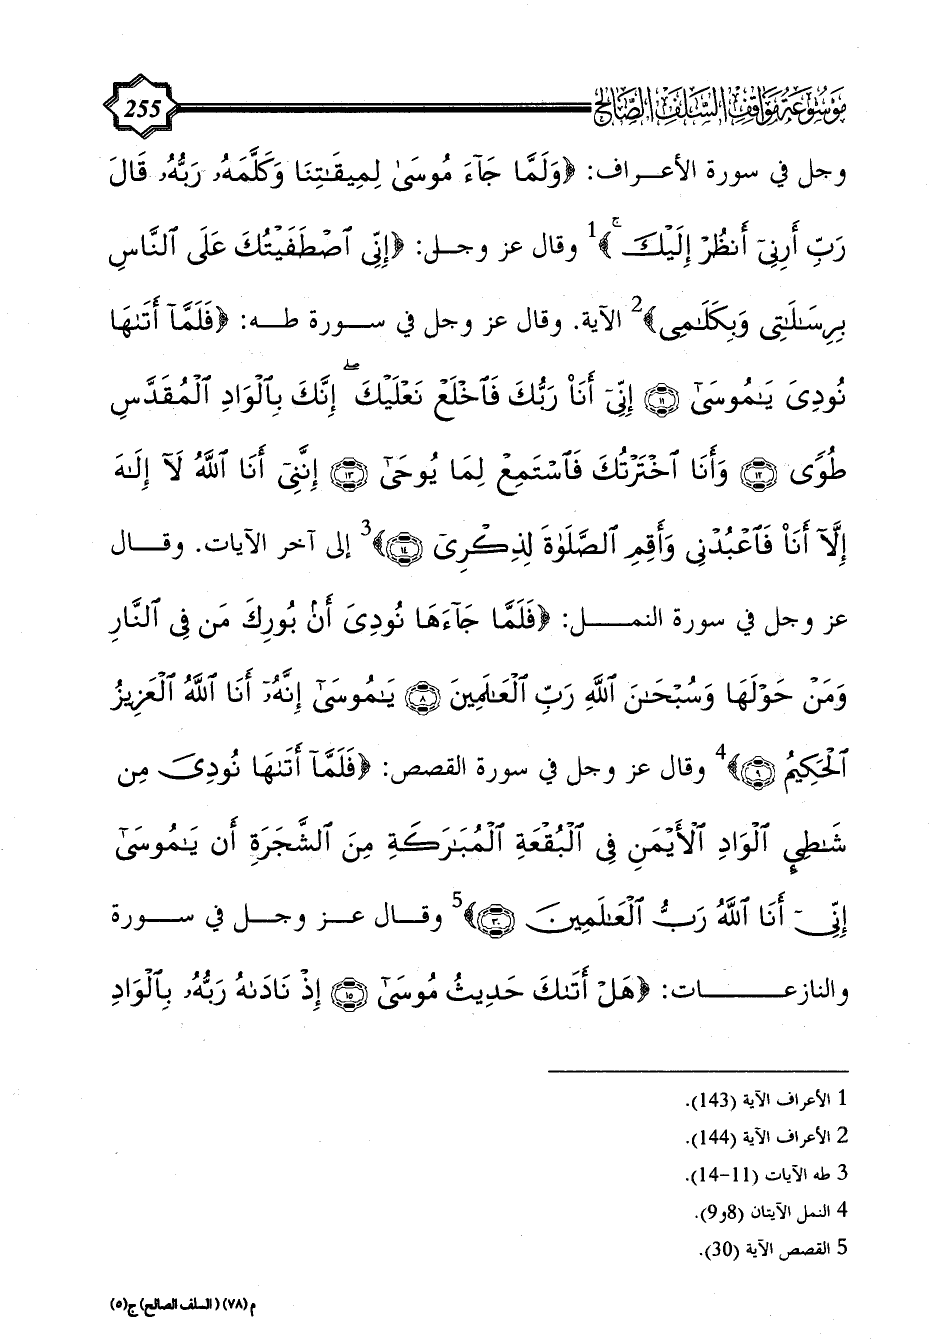 موسوعة مواقف السلف الصالح 255
وجل في سورة الأعراف: ﴿وَلَمَّا جَآءَ مُوسَىٰ لِمِيقَٰتِنَا وَكَلَّمَهُۥ رَبُّهُۥ قَالَ
رَبِّ أَرِنِىٓ أَنظُرْ إِلَيْكَ ۚ﴾1 وقال عز وجل: ﴿إِنِّى ٱصْطَفَيْتُكَ عَلَى ٱلنَّاسِ
بِرِسَٰلَٰتِى وَبِكَلَٰمِى﴾2 الآية. وقال عز وجل في سورة طه: ﴿فَلَمَّآ أَتَىٰهَا
نُودِىَ يَٰمُوسَىٰٓ ۝١١ إِنِّىٓ أَنَا۠ رَبُّكَ فَٱخْلَعْ نَعْلَيْكَ ۖ إِنَّكَ بِٱلْوَادِ ٱلْمُقَدَّسِ
طُوًى ۝١٢ وَأَنَا ٱخْتَرْتُكَ فَٱسْتَمِعْ لِمَا يُوحَىٰٓ ۝١٣ إِنَّنِىٓ أَنَا ٱللَّهُ لَآ إِلَٰهَ
إِلَّآ أَنَا۠ فَٱعْبُدْنِى وَأَقِمِ ٱلصَّلَوٰةَ لِذِكْرِىٓ ۝١٤﴾3 إلى آخر الآيات. وقال
عز وجل في سورة النمل: ﴿فَلَمَّا جَآءَهَا نُودِىَ أَنۢ بُورِكَ مَن فِى ٱلنَّارِ
وَمَنْ حَوْلَهَا وَسُبْحَٰنَ ٱللَّهِ رَبِّ ٱلْعَٰلَمِينَ ۝٨ يَٰمُوسَىٰٓ إِنَّهُۥٓ أَنَا ٱللَّهُ ٱلْعَزِيزُ
ٱلْحَكِيمُ ۝٩﴾4 وقال عز وجل في سورة القصص: ﴿فَلَمَّآ أَتَىٰهَا نُودِىَ مِن
شَٰطِئِ ٱلْوَادِ ٱلْأَيْمَنِ فِى ٱلْبُقْعَةِ ٱلْمُبَٰرَكَةِ مِنَ ٱلشَّجَرَةِ أَن يَٰمُوسَىٰٓ
إِنِّىٓ أَنَا ٱللَّهُ رَبُّ ٱلْعَٰلَمِينَ ۝٣٠﴾5 وقال عز وجل في سورة
والنازعات: ﴿هَلْ أَتَىٰكَ حَدِيثُ مُوسَىٰٓ ۝١٥ إِذْ نَادَىٰهُ رَبُّهُۥ بِٱلْوَادِ
1 الأعراف الآية (143).
2 الأعراف الآية (144).
3 طه الآيات (11-14).
4 النمل الآيتان (8و9).
5 القصص الآية (30).
م(٧٨) (السلف الصالح) ج(٥)